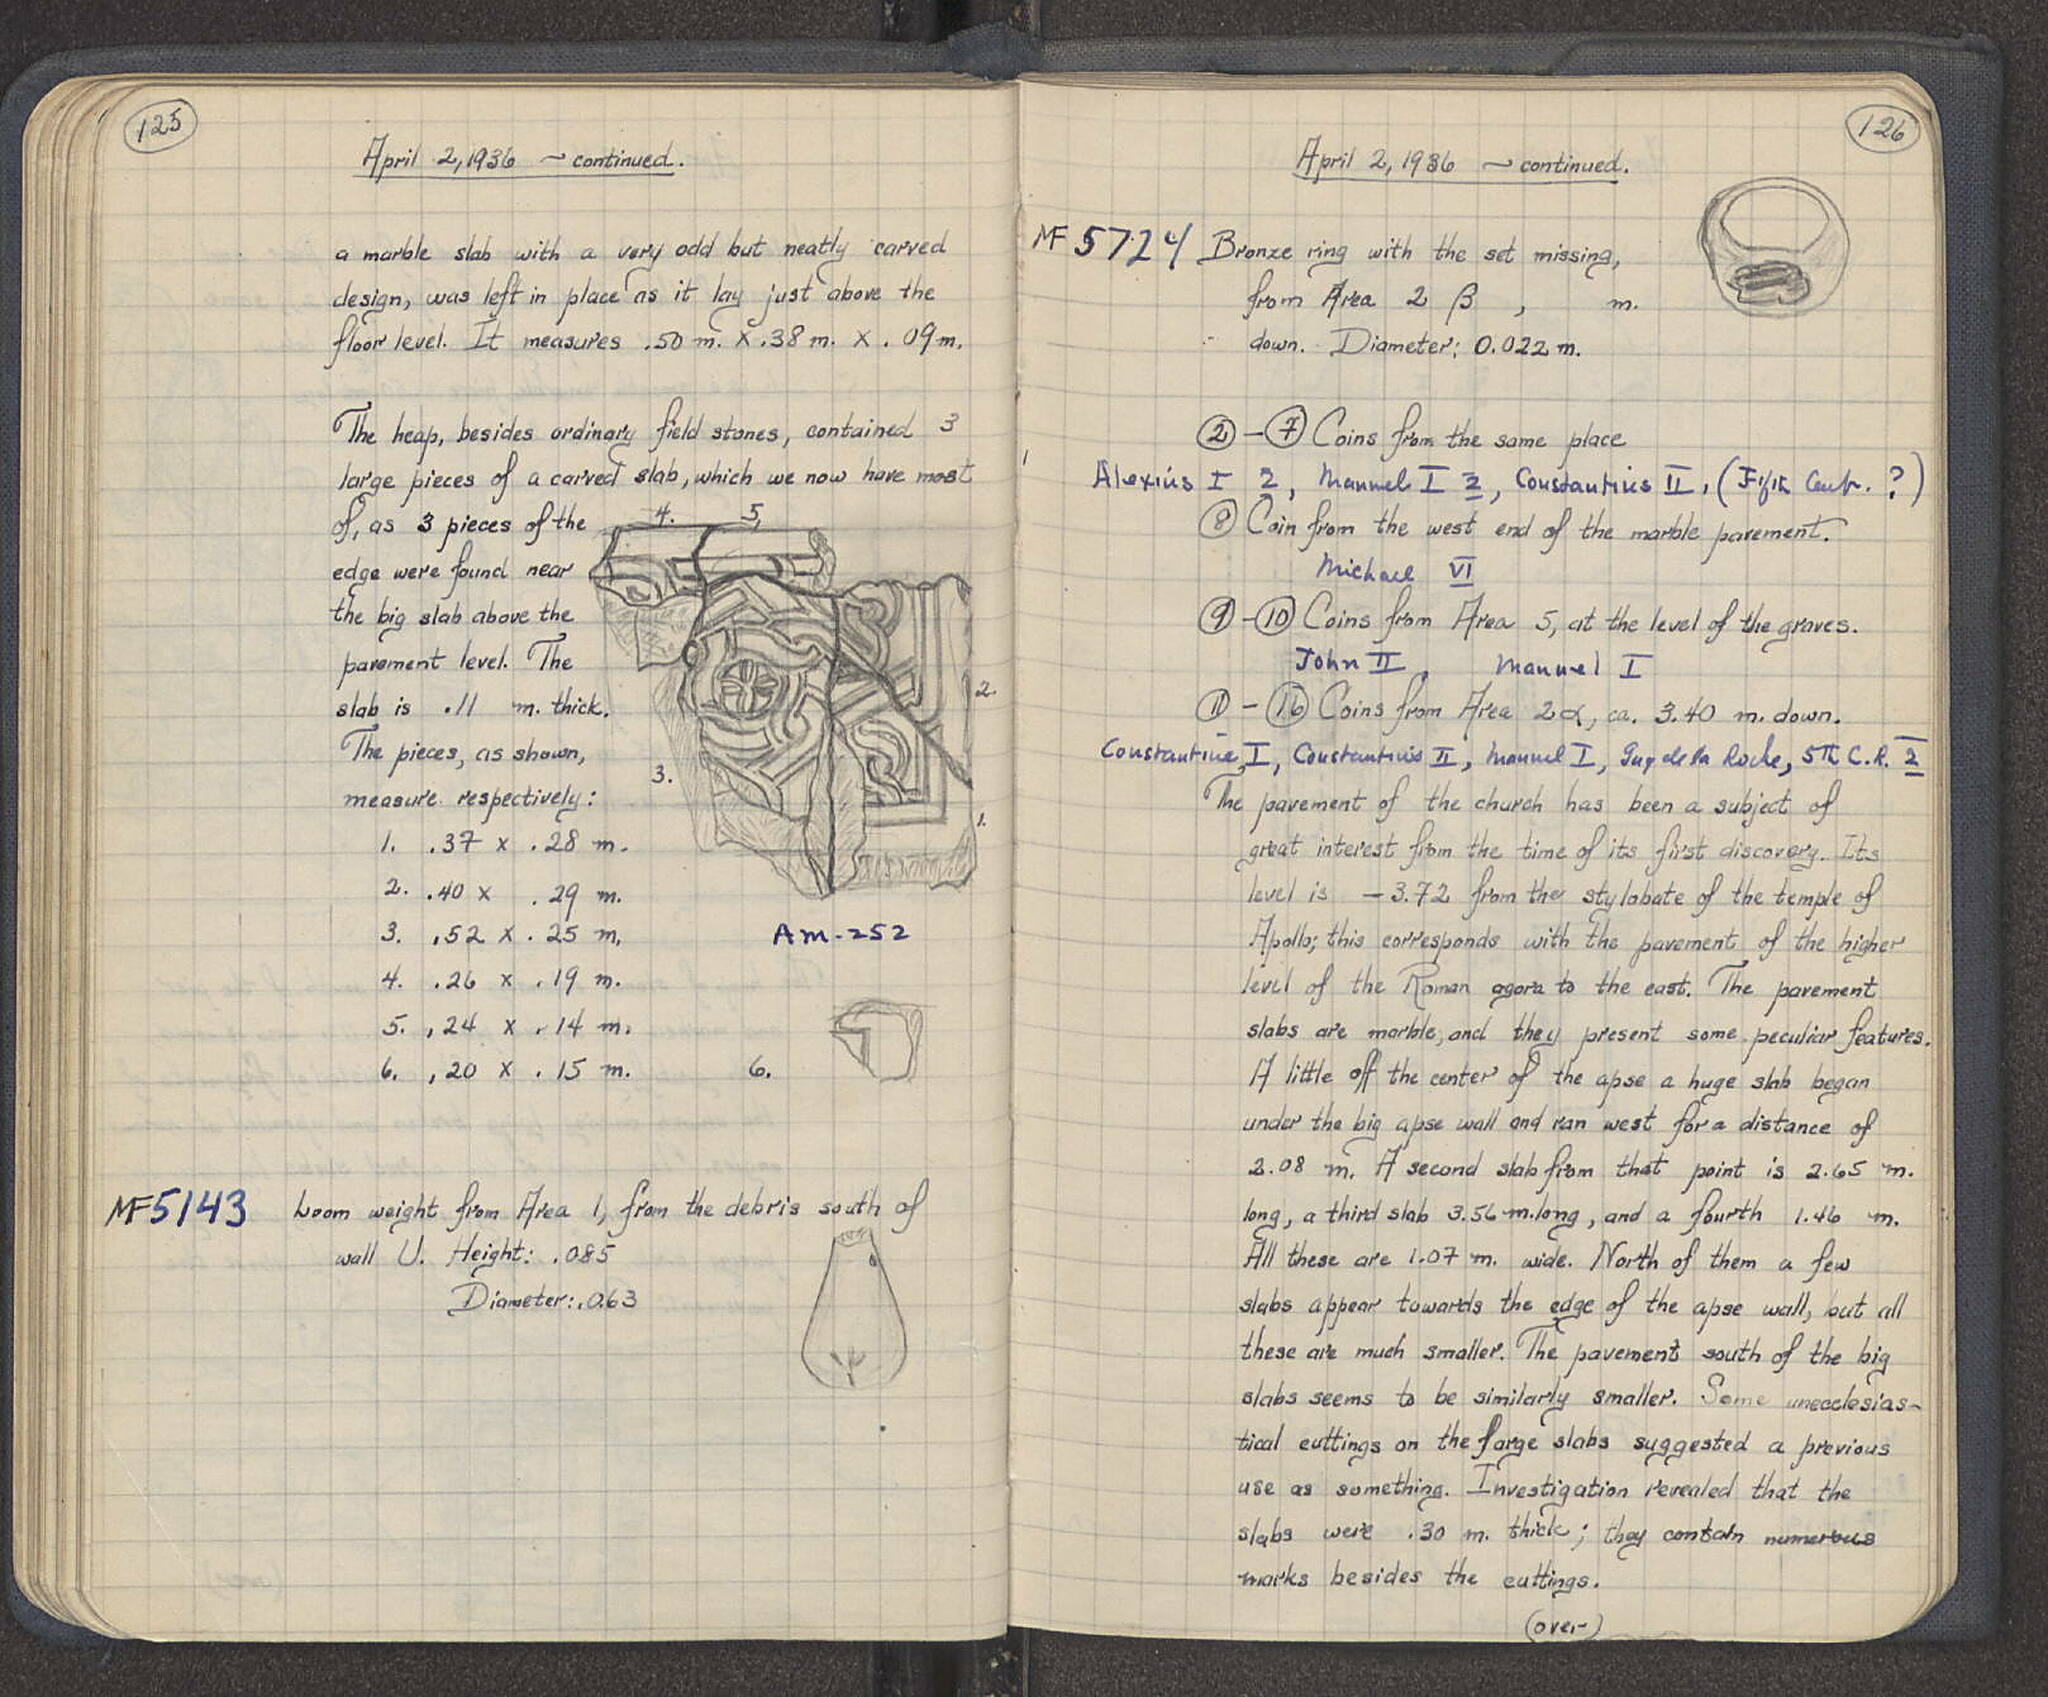 125
April 2, 1936 — continued.
a marble slab with a very odd but neatly carved
design, was left in place as it lay just above the
floor level. It measures .50 m. x .38 m. x .09 m.
The heap, besides ordinary field stones, contained 3
large pieces of a carved slab, which we now have most
of, as 3 pieces of the
edge were found near
the big slab above the
pavement level. The
slab is .11 m. thick.
The pieces, as shown,
measure respectively:
1. .37 x .28 m.
2. .40 x .29 m.
3. .52 x .25 m.
4. .26 x .19 m.
5. .24 x .14 m.
6. .20 x .15 m.
4. 5.
2.
3.
1.
AM-252
6.
MF 5143 Loom weight from Area 1, from the debris south of
wall U. Height: .085
Diameter: .063
126
April 2, 1936 — continued.
MF 5724 Bronze ring with the set missing,
from Area 2 β , m.
down. Diameter: 0.022 m.
② - ⑦ Coins from the same place
Alexius I 2, Manuel I 2, Constantius II, (Fifth Cent. ?)
⑧ Coin from the west end of the marble pavement.
Michael VI
⑨ - ⑩ Coins from Area 5, at the level of the graves.
John II, Manuel I
⑪ - ⑯ Coins from Area 2α, ca. 3.40 m. down.
Constantine I, Constantius II, Manuel I, Guy de la Roche, 5th C.R. 2
The pavement of the church has been a subject of
great interest from the time of its first discovery. Its
level is -3.72 from the stylobate of the temple of
Apollo; this corresponds with the pavement of the higher
level of the Roman agora to the east. The pavement
slabs are marble, and they present some peculiar features.
A little off the center of the apse a huge slab began
under the big apse wall and ran west for a distance of
2.08 m. A second slab from that point is 2.65 m.
long, a third slab 3.56 m. long, and a fourth 1.46 m.
All these are 1.07 m. wide. North of them a few
slabs appear towards the edge of the apse wall, but all
these are much smaller. The pavement south of the big
slabs seems to be similarly smaller. Some unecclesias-
tical cuttings on the large slabs suggested a previous
use as something. Investigation revealed that the
slabs were .30 m. thick; they contain numerous
marks besides the cuttings.
(over)